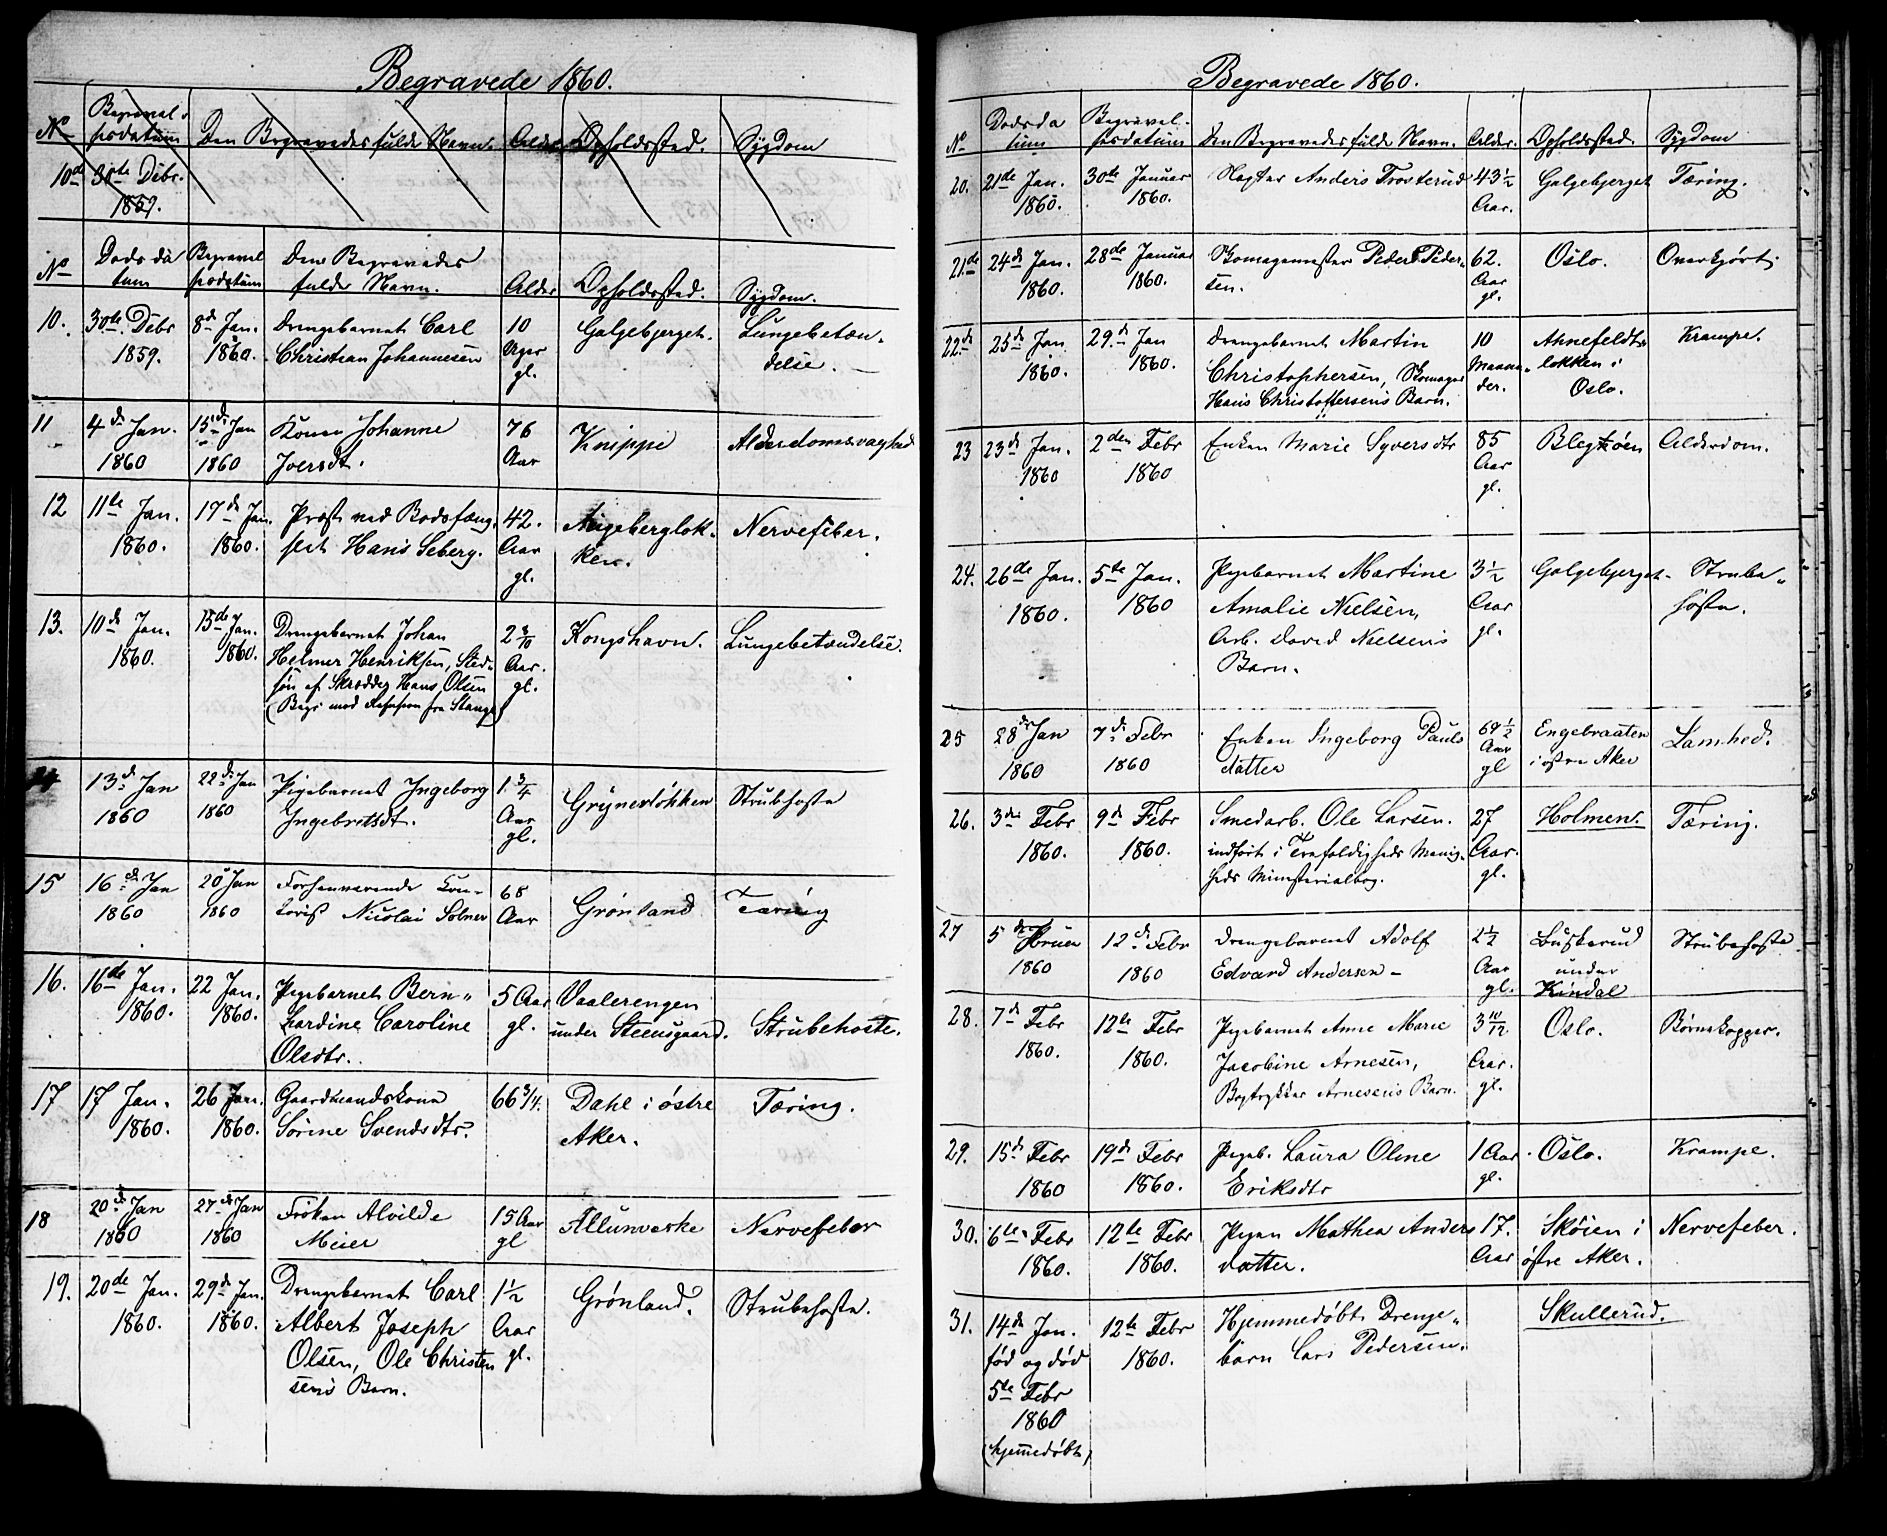 Begravede 1860.
No Begravel- Den Begravedes fulde Navn. Alder Opholdssted. Sygdom
sesdatum
10de 30te Debr.
1859.
No Dødsda Begravel Den Begravedes Alder Opholdssted. Sygdom.
tum sesdatum fulde Navn.
10. 30te Debr 8de Jan. Drengebarnet Carl 10 Galgebjerget. Lungebetæn-
1859. 1860. Christian Johannesen Uger delse.
gl.
11 4de Jan. 15de Jan Konen Johanne 76 Knippe Alderdomssvaghed
1860 1860 Iversdt. Aar
12 11te Jan. 17de Jan. Præst ved Bodsfæng- 42. Agebergløk- Nervefeber.
1860. 1860. slet Hans Seberg. Aar ken.
gl.
13. 10de Jan. 15de Jan. Drengebarnet Johan 2 3/10 Kongshavn. Lungebetændelse.
1860. 1860. Helmer Henriksen, Sted- Aar.
søn af Skrædder Hans Olsen gl.
(Begr mod fra Stange)
13de Jan 22de Jan Pigebarnet Ingeborg 1 3/4 Grünerløkken Strubehoste
1860 1860 Ingebretsdt. Aar
gl.
15 16de Jan 20 Jan Forhenværende Con- 68 Grønland Tæring
1860 1860 torist Nicolai Solner Aar
16. 16de Jan. 22 Jan. Pigebarnet Bern- 5 Aar Vaalerengen Strubehoste.
1860. 1860. hardine Caroline gl. under Steensgaard.
Olsdtr.
17 17 Jan. 26 Jan. Gaardmandskone 66 3/4. Dahl i østre Tæring.
1860. 1860. Sørine Svendsdtr. Aker.
18 20de Jan 27de Jan Frøken Alvilde 15 Aar Allunværke Nervefeber
1860 1860 Meier gl
19. 20de Jan. 29de Jan. Drengebarnet Carl 1 1/2 Grønland. Strubehoste.
1860. 1860. Albert Joseph Aar
Olsen, Ole Christen gl.
sens Barn.
Begravede 1860.
No Dødsda Begravel- Den Begravedes fulde Navn. Alder. Opholdssted. Sygdom
tum sesdatum
20. 21de Jan. 30te Januar Anders Trosterud 43 1/2 Galgebjerget Tæring.
1860. 1860. Aar.
21de 24de Jan. 28de Januar Skomagermester Peder Peder- 62. Oslo. Overkjørt
1860. 1860. sen. Aar
gl.
22de 25de Jan 29de Jan Drengebarnet Martin 10 Ahnefeldts- Krampe.
1860. 1860. Christophersen, Skomager Maane- løkken i
Hans Christoffersens Barn. der. Oslo.
23 23de Jan. 2den Febr Enken Marie Syversdtr 85 Blegeøen Alderdom.
1860 1860 Aar
gl.
24. 26de Jan. 5te Jan. Pigebarnet Martine 3 1/2 Galgebjerget Strube-
1860. 1860 Amalie Nielsen, Aar hoste.
Arb. David Nielsens gl.
Barn.
25 28de Jan 7de Febr Enken Ingeborg Pauls 69 1/2 Engebraaten Lamhed.
1860 1860 datter Aar i østre Aker
gl
26. 3die Febr 9de Febr Smedarb. Ole Larsen. 27 Holmen. Tæring.
1860. 1860. indført i Trefoldigheds Menig- Aar.
heds Ministerialbog. gl.
27 5de Februar 12de Febr Drengebarnet Adolf 2 1/2 Buskerud Strubehoste
1860 1860 Edvard Andersen- Aar under
gl. Kindal
28. 7de Febr 12te Febr Pigebarnet Anne Marie 3 10/12 Oslo. Børnekopper.
1860. 1860. Jacobine Arnesen, Aar.
Bogtrykker Arnesens Barn. gl.
29. 15de Febr 19de Febr Pigeb. Laura Oline 1 Aar Oslo. Krampe.
1860 1860. Eriksdtr gl.
30. 6te Febr 12te Febr Pigen Mathea Anders 17. Skøien i Nervefeber.
1860. 1860. datter. Aar østre Aker.
31. 14de Jan. 12te Febr Hjemmedøbt Drenge- Skullerud.
fød og død 1860. barn Lars Pedersen.
5te Febr
1860
(hjemmedøbt)